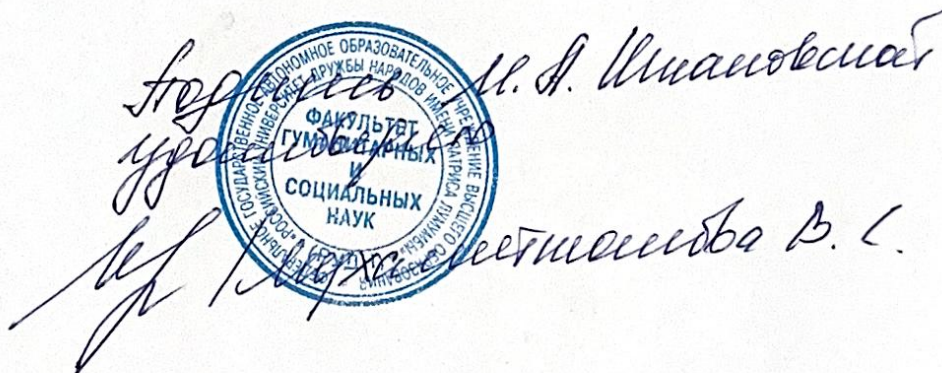 Подпись М. А.
удостоверяю
В. С.
ФЕДЕРАЛЬНОЕ ГОСУДАРСТВЕННОЕ АВТОНОМНОЕ ОБРАЗОВАТЕЛЬНОЕ УЧРЕЖДЕНИЕ ВЫСШЕГО ОБРАЗОВАНИЯ
«РОССИЙСКИЙ УНИВЕРСИТЕТ ДРУЖБЫ НАРОДОВ ИМЕНИ ПАТРИСА ЛУМУМБЫ»
ФАКУЛЬТЕТ
ГУМАНИТАРНЫХ
И
СОЦИАЛЬНЫХ
НАУК